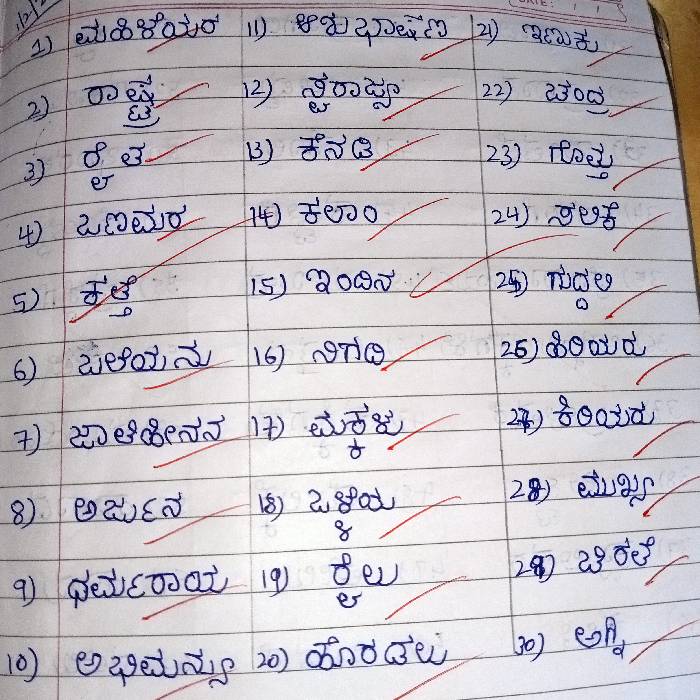 1) ಮಹಿಳೆಯರ
2) ರಾಷ್ಟ್ರ
3) ರೈತ
4) ಒಣಮರ
5) ಕತ್ತೆ
6) ಒಲೆಯನು
7) ಜಾತಿಹೀನನ
8) ಅರ್ಜುನ
9) ಧರ್ಮರಾಯ
10) ಅಭಿಮನ್ಯು
11) ಆಶುಭಾಷಣ
12) ಸ್ವರಾಜ್ಯ
13) ಕೆನಡಿ
14) ಕಲಾಂ
15) ಇಂದಿನ
16) ನಿಗದಿ
17) ಮಕ್ಕಳು
18) ಒಳ್ಳೆಯ
19) ರೈಲು
20) ಹೊರಡಲು
21) ಇಣುಕು
22) ಚಂದ್ರ
23) ಗೊತ್ತು
24) ಸಲಿಕೆ
25) ಗುದ್ದಲಿ
26) ಹಿರಿಯರು
27) ಕಿರಿಯರು
28) ಮುಖ್ಯ
29) ಚಿರತೆ
30) ಅಗ್ನಿ